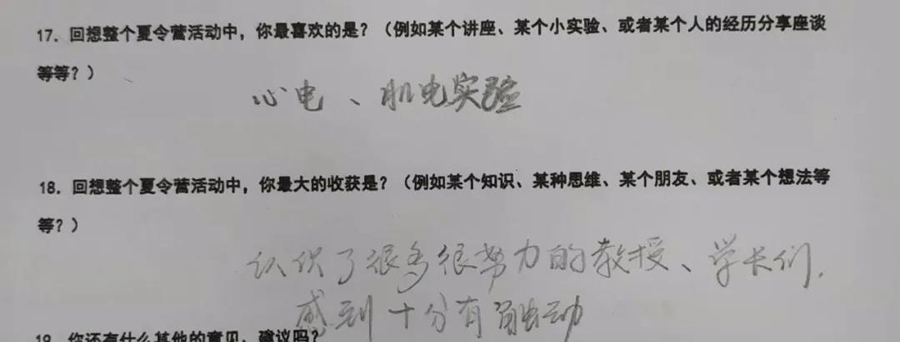 17. 回想整个夏令营活动中，你最喜欢的是？（例如某个讲座、某个小实验、或者某个人的经历分享座谈
等等？）
心电、肌电实验
18. 回想整个夏令营活动中，你最大的收获是？（例如某个知识、某种思维、某个朋友、或者某个想法等
等？）
认识了很多很努力的教授、学长们，
感到十分有触动
19. 你还有什么其他的意见、建议吗？